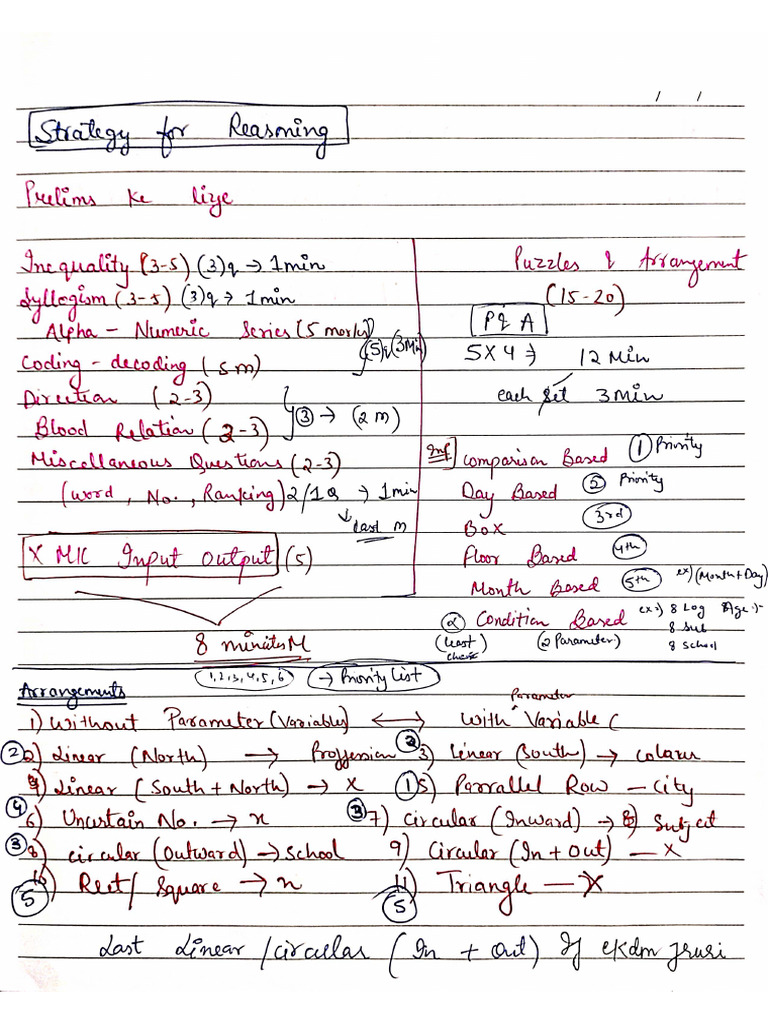 / /
Strategy for Reasoning
Prelims ke liye
Inequality (3-5) (3)q → 1min
Syllogism (3-5) (3)q → 1min
Alpha - Numeric Series (5 marks)
(5)q (3Min)
Coding - decoding (5m)
Direction (2-3)
Blood Relation (2-3)
③ → (2 m)
Miscellaneous Questions (2-3)
(word, No., Ranking) 2/1Q → 1min
↓ last m
X MIC Input Output (5)
8 minutes M
Puzzles & Arrangement
(15-20)
P & A
5x4 → 12 Min
each set 3 Min
Comparison Based ① Priority
Day Based ② Priority
Box 3rd
Floor Based 4th
Month Based 5th ex) (Month+Day)
Condition Based ex) 8 Log Age :-
(least (2 Parameter) 8 Sub
8 School
1,2,3,4,5,6 → Priority List
Arrangements
Parameter
1) Without Parameter (Variables) ↔ With Variable (
② 2) Linear (North) → Proffession ② 3) Linear (South) → Colour
4) Linear (South + North) → X ① 5) Parrallel Row - City
④ 6) Uncertain No. → x ③ 7) Circular (Inward) → Subject
③ 8) circular (Outward) → School 9) Circular (In + Out) — X
⑤ 10) Rect/ Square → x ⑤ 11) Triangle — X
Last Linear / circular (In + Out) If ekdm jruri